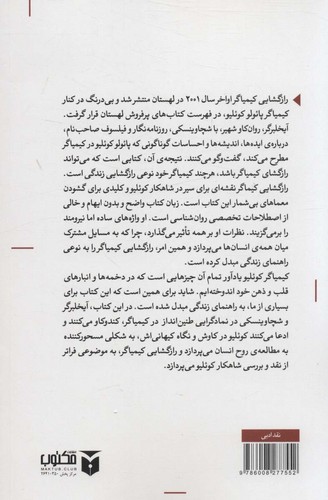 رازگشایی کیمیاگر اواخر سال ۲۰۰۱ در لهستان منتشر شد و بی‌درنگ در کنار
کیمیاگر پائولو کوئلیو، در فهرست کتاب‌های پرفروش لهستان قرار گرفت.
آیخلبرگر، روان‌کاو شهیر، با شچاوینسکی، روزنامه‌نگار و فیلسوف صاحب‌نام،
درباره‌ی ایده‌ها، اندیشه‌ها و احساسات گوناگونی که پائولو کوئلیو در کیمیاگر
مطرح می‌کند، گفت‌وگو می‌کنند. نتیجه‌ی آن، کتابی است که می‌تواند
رازگشای کیمیاگر باشد، هرچند کیمیاگر خود نوعی رازگشایی زندگی است.
رازگشایی کیمیاگر نقشه‌ای برای سیر در شاهکار کوئلیو و کلیدی برای گشودن
معماهای بی‌شمار این کتاب است. زبان کتاب واضح و بدون ابهام و خالی
از اصطلاحات تخصصی روان‌شناسی است. او واژه‌های ساده اما نیرومند
را برمی‌گزیند. نظرات او بر همه تأثیر می‌گذارد، چرا که به مسایل مشترک
میان همه‌ی انسان‌ها می‌پردازد و همین امر، رازگشایی کیمیاگر را به نوعی
راهنمای زندگی مبدل کرده است.
کیمیاگر کوئلیو یادآور تمام آن چیزهایی است که در دخمه‌ها و انبارهای
قلب و ذهن خود اندوخته‌ایم. شاید برای همین است که این کتاب برای
بسیاری از ما، به راهنمای زندگی مبدل شده است. در این کتاب، آیخلبرگر
و شچاوینسکی در نمادگرایی طنین‌انداز در کیمیاگر، کندوکاو می‌کنند و
ادعا می‌کنند کوئلیو در کاوش و نگاه کیهانی‌اش، به شکلی مسحورکننده
به مطالعه‌ی روح انسان می‌پردازد و رازگشایی کیمیاگر، به موضوعی فراتر
از نقد و بررسی شاهکار کوئلیو می‌پردازد.
نقد ادبی
9786008277552
مکتوب
MAKTUB.CLUB